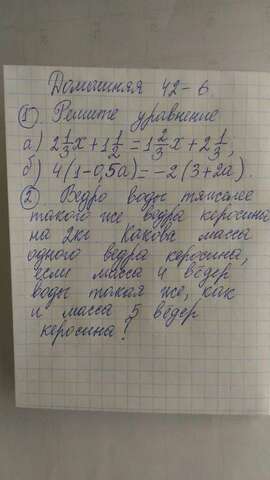 Домашняя 42-6.
① Решите уравнение
а) 2 1/3 x + 1 1/2 = 1 2/3 x + 2 1/3;
б) 4(1-0,5а) = -2(3+2а).
② Ведро воды тяжелее
такого же ведра керосина
на 2кг. Какова масса
одного ведра керосина,
если масса 4 ведер
воды такая же, как
и масса 5 вёдер
керосина?